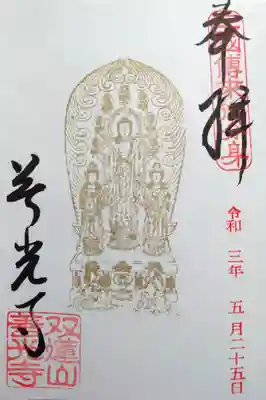 奉拝
令和 三年 五月二十五日
善光寺
善光寺